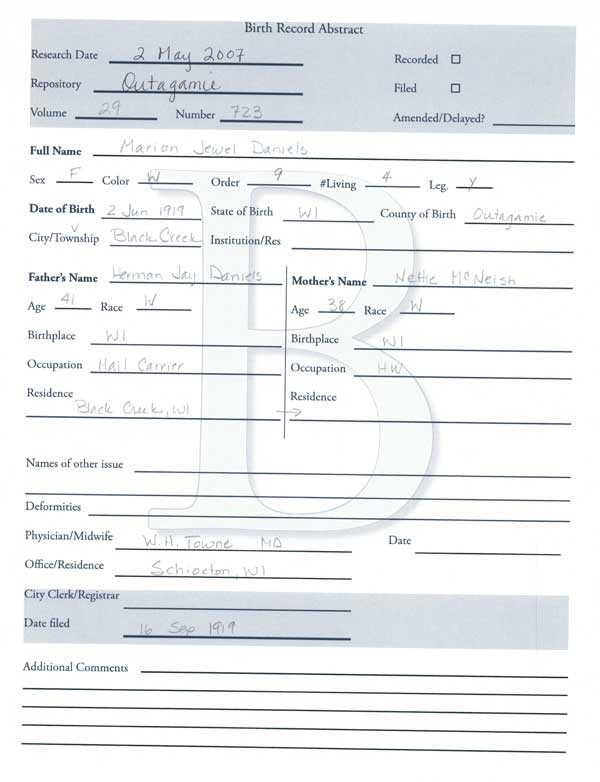 Birth Record Abstract
Research Date 2 May 2007 Recorded
Repository Outagamie Filed
Volume 29 Number 723 Amended/Delayed?
Full Name Marion Jewel Daniels
Sex F Color W Order 9 #Living 4 Leg. y
Date of Birth 2 Jun 1919 State of Birth WI County of Birth Outagamie
City/Township Black Creek Institution/Res
Father's Name Herman Jay Daniels Mother's Name Nettie McNeish
Age 41 Race W Age 38 Race W
Birthplace WI Birthplace WI
Occupation Mail Carrier Occupation HW
Residence Black Creek, WI Residence →
Names of other issue
Deformities
Physician/Midwife W.H. Towne MD Date
Office/Residence Schiocton, WI
City Clerk/Registrar
Date filed 16 Sep 1919
Additional Comments
B